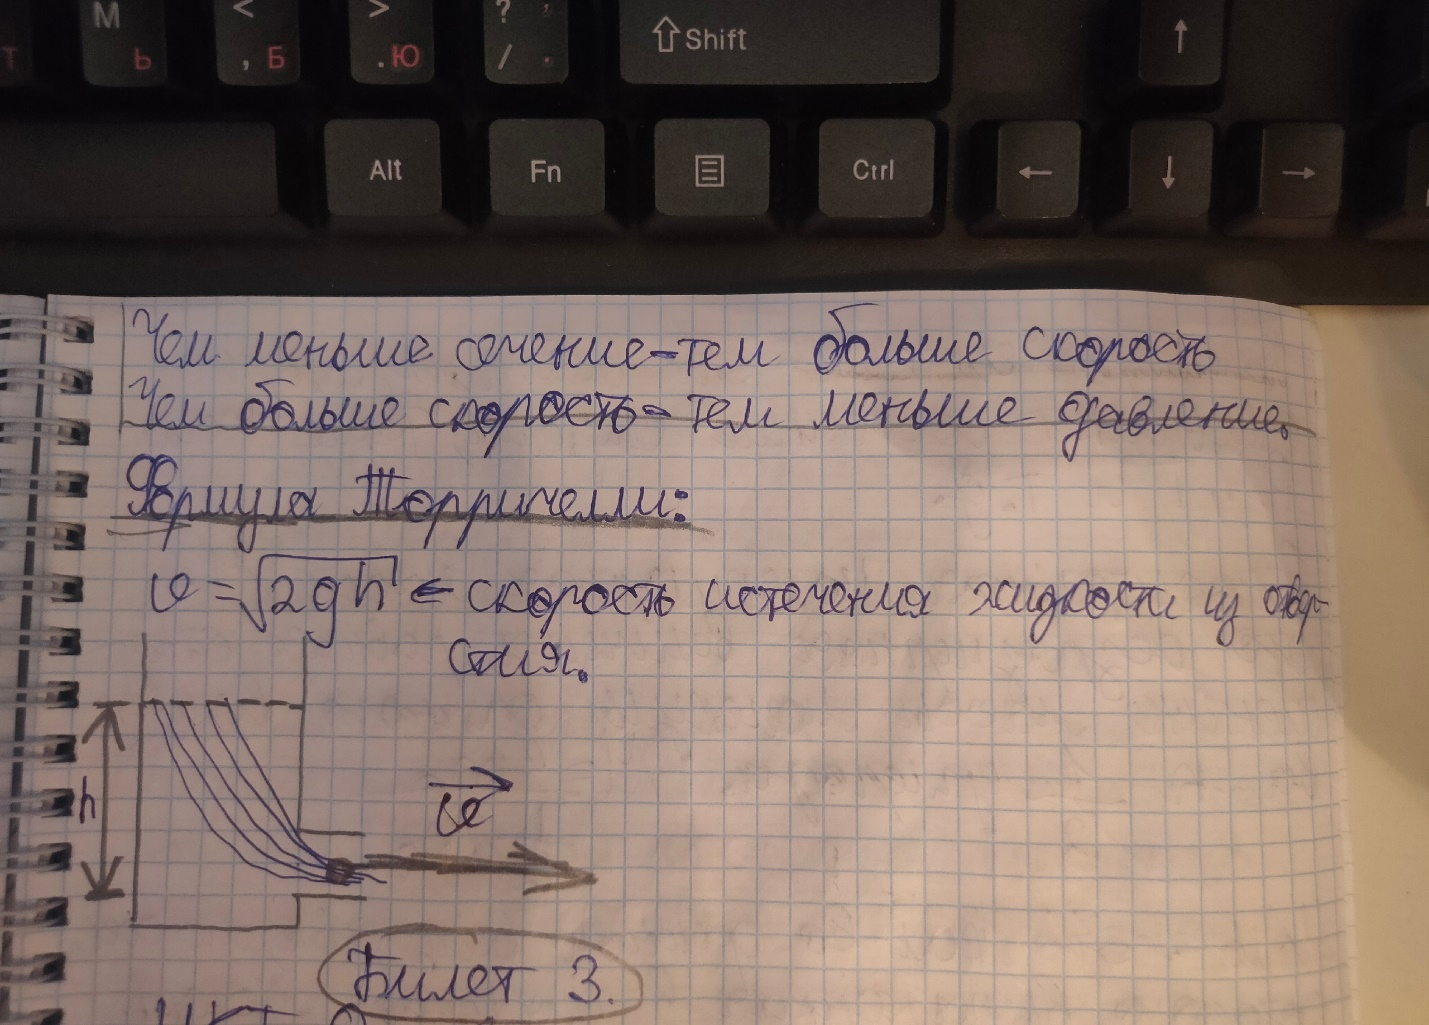 М < > ? ,
Т Ь , Б . Ю / .
⇧ Shift ↑
Alt Fn Ctrl ← ↓ →
Чем меньше сечение-тем больше скорость
Чем больше скорость- тем меньше давление.
Формула Торричелли:
v = √2gh ← скорость истечения жидкости из отвер-
стия.
h
v
Билет 3.